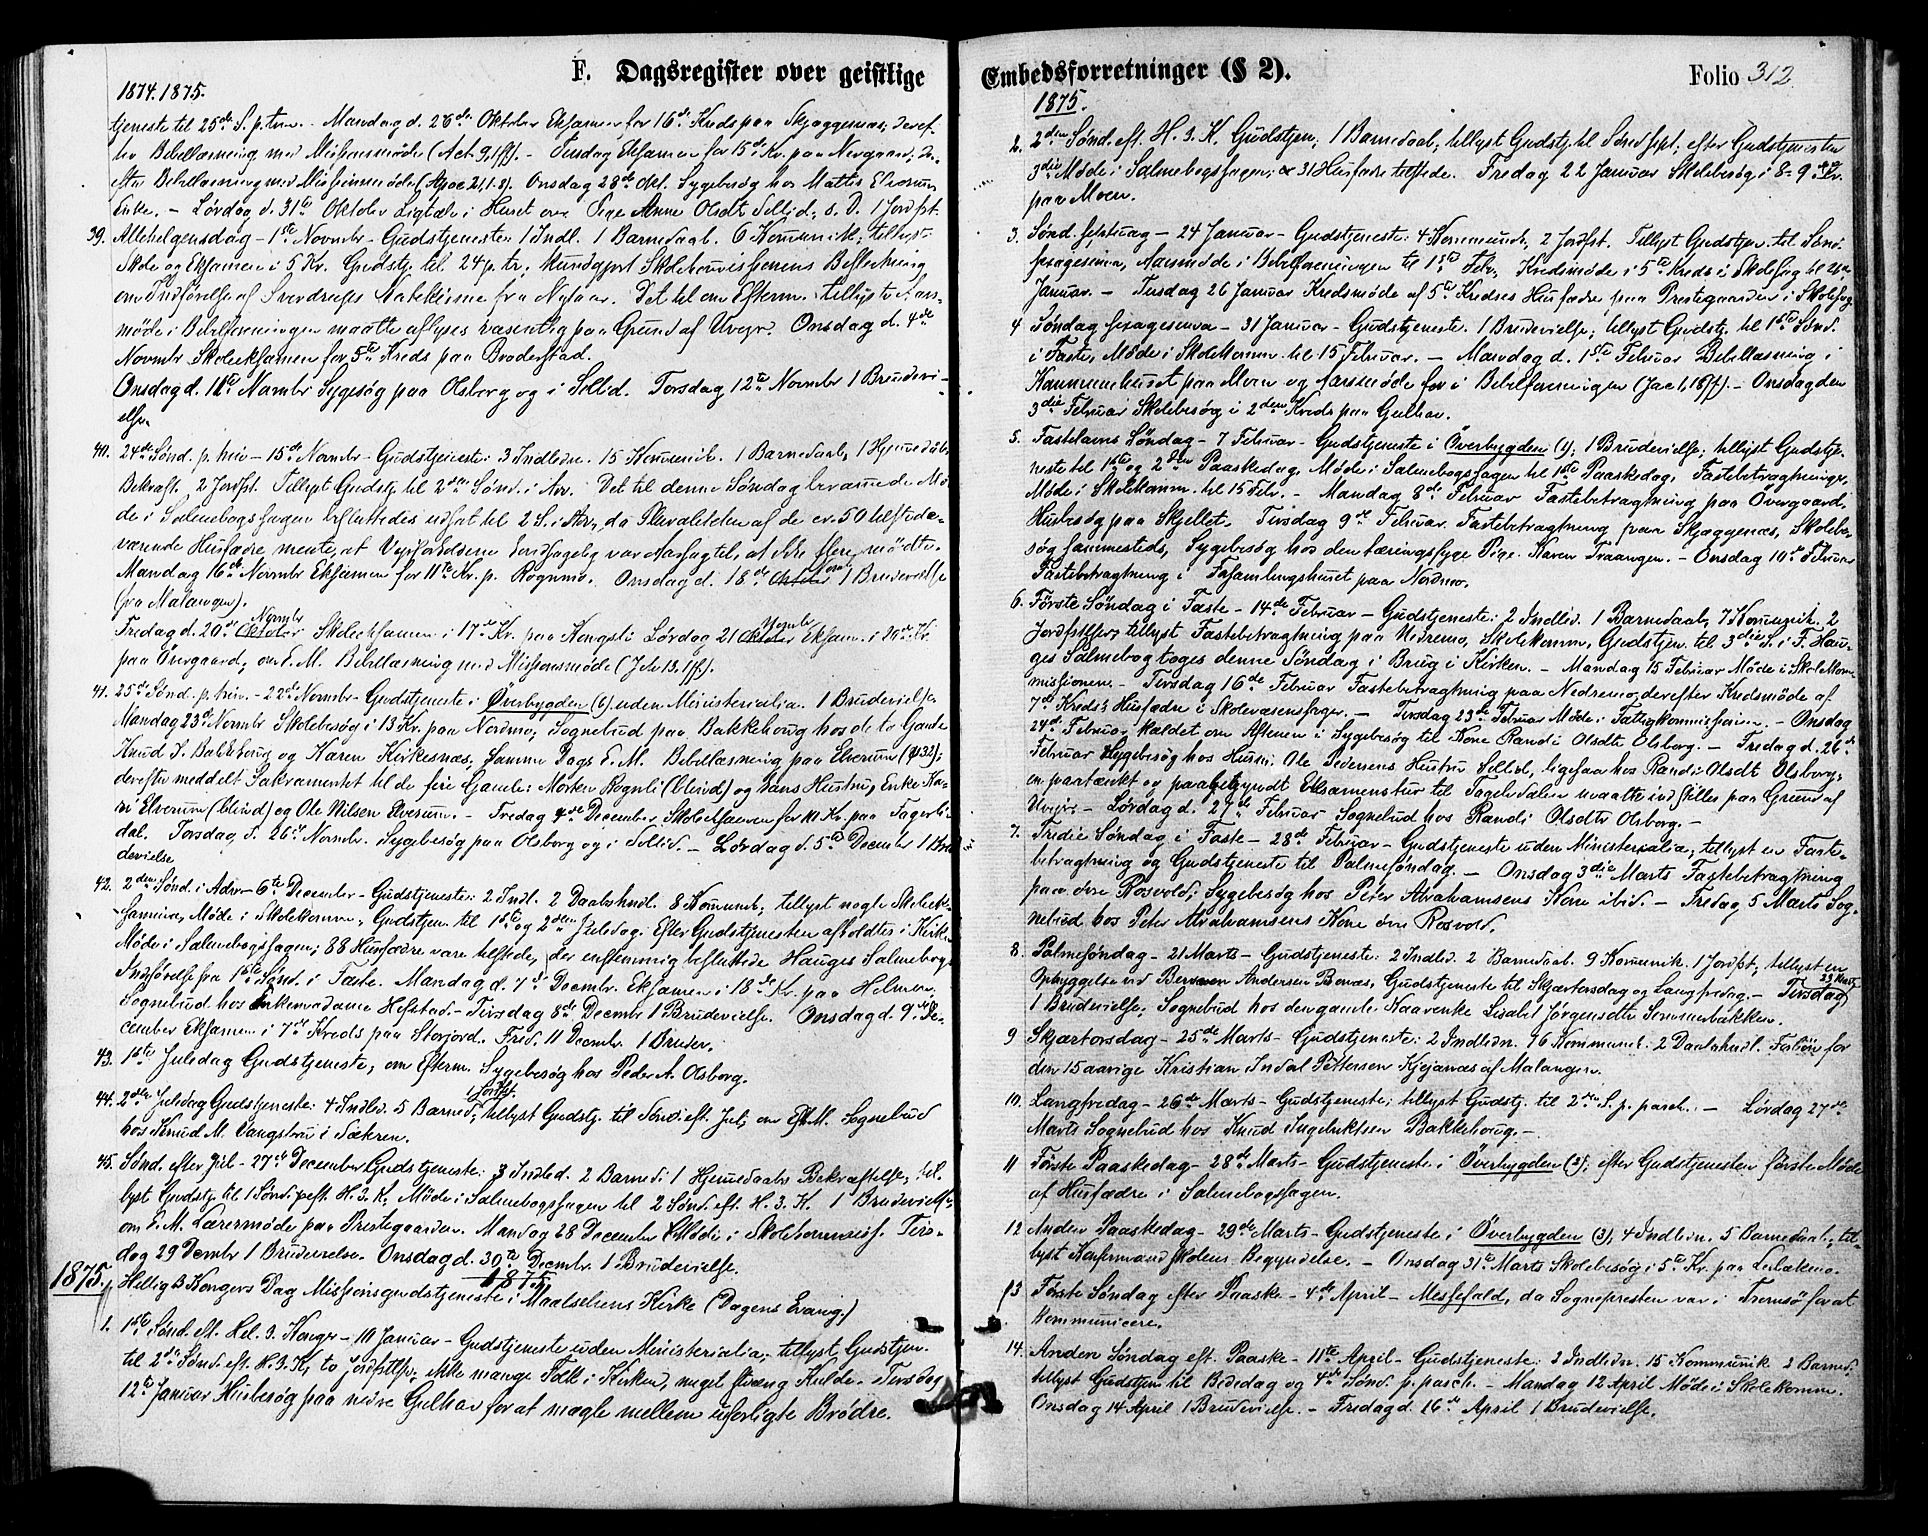 F. Dagsregister over geistlige
1874. 1875.
tjeneste til 25de S. p. trin. - Mandag d. 26de Oktober Eksamen for 16de Kreds paa Skjæggesnæs; deref-
ter Bibellæsning med Missionsmøde (Act. 9,1ff). - Tirsdag Eksamen for 15de Kr. paa Navgaard, der-
efter Bibellæsning med Missionsmøde (Apoc 21,1-8). Onsdag 28de Okt. Sygebesøg hos Mattis Elverums
Enke. - Lørdag d. 31te Oktober Ligtale i Huset over Pige Anne Olsdt Sollid; s. D. 1 Jordfst.
39. Allehelgensdag - 1ste Novembr - Gudstjeneste: 1 Indl. 1 Barnedaab. 6 Kommunik; tillyst
Skole og Eksamen i 5 Kr. Gudstj. til 24 p. tr; kundgjort Skolekommissionens Beslutning
om Indførelse af Sverdrups Katekisme fra Nytaar. Det til om Efterm. tillyste Aars-
møde i Bibelforeningen maatte aflyses væsentlig paa Grund af Uveir. Onsdag d. 4de
Novmbr Skoleeksamen for 5te Kreds paa Broderstad.
Onsdag d. 11te Novmbr Sygebesøg paa Olsborg og i Sollid. Torsdag 12te Novmbr 1 Brudevi-
else.
40. 24de Sønd. p. trin - 15de Novmbr - Gudstjeneste: 3 Indledn. 15 Kommunik. 1 Barnedaab, 1 Hjemmedaabs
Bekræft. 2 Jordfst. Tillyst Gudstj. til 2den Sønd. i Adv. Det til denne Søndag berammede Mø-
de i Salmebogssagen besluttedes udsat til 2 S. i Adv., da Pluraliteten af de ca. 50 tilstede-
værende Husfædre mente, at Veirforholdene fornemmelig var Aarsag til, at ikke flere mødte.
Mandag 16de Novmbr Eksamen for 11te Kr. p. Rognmo. Onsdag d. 18de Oktober Novmbr 1 Brudevielse
(fra Malangen).
Fredag d. 20de Oktober Novmbr Skoleeksamen i 17de Kr. paa Kongsli Lørdag 21 Oktober Novmbr Eksam. i Kr.
paa Övergaard, om E. M. Bibellæsning med Missionsmøde (Joh. 13,1ff).
41. 25de Sønd. p. trin. - 22de Novmbr - Gudstjeneste i Överbygden (6) uden Ministerialia. 1 Brudevielse.
Mandag 23de Novmbr Skolebesøg i 13 Kr. paa Nordmo, Sognebud paa Bakkehoug hos de to Gamle
Knud I. Bakkehoug og Karen Kirkesnæs, samme Dags E. M. Bibellæsning paa Elverum (ψ 32);
derefter meddelt Sakramentet til de fire Gamle: Morten Rognli (blind) og hans Hustru, Enke Ka-
ri Elverum (blind) og Ole Nilsen Elverum. - Fredag 4de December Skoleeksamen for 10 Kr. paa Fagerli-
dal. Torsdag d. 26de Novmbr. Sygebesøg paa Olsborg og i Sollid. - Lørdag d. 5te Decembr 1 Bru-
devielse
42. 2den Sønd. i Adv. - 6te December - Gudstjeneste: 2 Indl. 2 Daabshndl. 8 Kommunik; tillyst nogle Skoleek-
samina, Møde i Skolekomm., Gudstjen. til 1ste og 2den Juledag. Efter Gudstjenesten afholdtes i Kirken
Møde i Salmebogssagen; 88 Husfædre vare tilstede, der enstemmig besluttede Hauges Salmebogs
Indførelse fra 1ste Sønd. i Faste. Mandag d. 7de Decembr. Eksamen i 18de Kr. paa Holmen.
Sognebud hos Enkemadame Hofstad. - Tirsdag 8de Decembr 1 Brudevielse. Onsdag d. 9de De-
cember Eksamen i 7de Kreds paa Storjord. Fred. 11 Decembr. 1 Brudev.
43. 1ste Juledag Gudstjeneste, om Efterm. Sygebesøg hos Peder A. Olsborg.
44. 2den Juledag Gudstjeneste: 4 Indled. 5 Barned. 1 Jordfst. tillyst Gudstj. til Sønd. eft. Jul, om Eft.M. Sognebud
hos Knud M. Vangstun i Sækren.
45. Sønd. efter Jul - 27de December Gudstjeneste: 3 Indled. 2 Barned. 1 Hjemmedaabs Bekræftelse; til-
lyst Gudstj. til 1 Sønd. eft. H. 3. K. Møde i Salmebogssagen til 2 Sønd. eft. H. 3. K. 1 Brudevielse,
om E. M. Lærermøde paa Prestegaarden. Mandag 28 December Møde i Skolekommiss. Tirs-
dag 29 Dembr 1 Brudevielse. Onsdag d. 30te Decembr. 1 Brudevielse.
1875.
1875. Hellig 3 Kongers Dag Missionsgudstjeneste i Maalselvens Kirke (Dagens Evang.)
1. 1ste Sønd. eft. Hel. 3. Konger - 10 Januar - Gudstjeneste uden Ministerialia; tillyst Gudstjen.
til 2den Sønd. eft. H. 3. K, to Jordfstlsr, ikke mange Folk i Kirken, meget stræng Kulde. - Tirsdag
12te Januar Husbesøg paa nedre Gulhav for at mægle mellem uforligte Brødre.
Embedsforretninger (§ 2).
Folio 312.
1875.
2. 2den Sønd. eft. H. 3. K. Gudstjen. 1 Barnedaab; tillyst Gudstj. til Sønd. spt.; efter Gudstjenesten
3die Møde i Salmebogssagen; ca 31 Husfædre tilstede. Fredag 22 Januar Skolebesøg i 8-9de Kr.
paa Moen.
3. Sønd. septuag - 24 Januar - Gudstjeneste: 4 Kommunik, 2 Jordfst. Tillyst Gudstjen. til Sønd.
sexagesima, Aarsmøde i Bibelforeningen til 1ste Febr, Kredsmøde i 5te Kreds i Skolesag til 26de
Januar. - Tirsdag 26 Januar Kredsmøde af 5te Kredses Husfædre paa Prestegaarden i Skolesag
4 Søndag sexagesima - 31 Januar - Gudstjeneste. 1 Brudevielse; tillyst Gudstj. til 1ste Sønd.
i Faste, Møde i Skolekomm. til 15 Februar. - Mandag d. 1ste Februar Bibellæsning i
Kommunehuset paa Moen og Aarsmøde for i Bibelforeningen (Jac 1,18ff). - Onsdag den
3die Februar Skolebesøg i 2den Kreds paa Gulhav.
5. Fastelavns Søndag - 7 Februar - Gudstjeneste i Överbygden (1); 1 Brudevielse; tillyst Gudstje-
neste til 1ste og 2den Paaskedag, Møde i Salmebogssagen til 1ste Paaskedag, Fastebetragtninger,
Møde i Skolekomm. til 15 Febr. - Mandag 8de Februar Fastebetragtning paa Övergaard,
Husbesøg paa Skjellet. Tirsdag 9de Februar Fastebetragtning paa Skjæggenæs, Skolebe-
søg sammesteds, Sygebesøg hos den tæringssyge Pige Karen Traangen. - Onsdag 10de Februar
Fastebetragtning i Forsamlingshuset paa Nordmo.
6. Første Søndag i Faste - 14de Februar - Gudstjeneste: 2 Indled. 1 Barnedaab, 7 Kommunik. 2
Jordfstlser, tillyst Fastebetragtning paa Nedremo, Skolekomm, Gudstjen. til 3die S. i F. Hau-
ges Salmebog toges denne Søndag i Brug i Kirken. - Mandag 15 Februar Møde i Skolekom-
missionen. - Tirsdag 16de Februar Fastebetragtning paa Nedremo, derefter Kredsmøde af
7de Kreds's Husfædre i Skolevæsenssager. - Tirsdag 23de Februar Møde i Fattigkommissionen. - Onsdag
24de Februar kaldet om Aftenen i Sygebesøg til Kone Randi Olsdtr Olsborg. - Fredag d. 26de
Februar Sygebesøg hos Husm. Ole Pedersens Hustru Sollid, ligesaa hos Randi Olsdt Olsborg;
en paatænkt og paabegyndt Eksamenstur til Tagelvdalen maatte indstilles paa Grund af
Uveir. - Lørdag d. 27de Februar Sognebud hos Randi Olsdtr Olsborg. -
7. Tredie Søndag i Faste - 28de Februar - Gudstjeneste uden Ministerialia; tillyst en Faste-
betragtning og Gudstjeneste til Palmesøndag. - Onsdag 3die Marts Fastebetragtning
paa øvre Rosvold; Sygebesøg hos Peter Abrahamsens Kone ibid. - Fredag 5 Marts Sog-
nebud hos Peter Abrahamsens Kone øvre Rosvold.
8. Palmesøndag - 21 Marts - Gudstjeneste: 2 Indled. 2 Barnedaab. 9 Kommunik. 1 Jordfst; tillyst en
Opbyggelse ved Andersen Bernæs, Gudstjeneste til Skjærtorsdag og Langfredag. - Tirsdag 23 Marts
1 Brudevielse, Sognebud hos den gamle Kaarenke Lisabet Jørgensdtr Sommerbakken.
9 Skjærtorsdag - 25de Marts - Gudstjeneste: 2 Indledn. 16 Kommunik: 2 Daabshndl. Forbøn for
den 15aarige Kristian Indal Pettersen Kjejanæs af Malangen.
10. Langfredag - 26de Marts - Gudstjeneste; tillyst Gudstj. til 2den S. p. pasch. - Lørdag 27de
Marts Sognebud hos Knud Ingebriktsen Bakkehoug. -
11 Første Paaskedag - 28de Marts - Gudstjeneste i Överbygden (2); efter Gudstjenesten første Møde
af Husfædre i Salmebogssagen.
12 Anden Paaskedag - 29de Marts - Gudstjeneste i Överbygden (3), 4 Indledn. 5 Barnedaab; til-
lyst Konfirmandskolens Begyndelse. - Onsdag 31te Marts Skolebesøg i 5te Kr. paa
13 Første Søndag efter Paaske - 4de April - Messefald, da Sognepresten var i Tromsö for at
kommunicere.
14. Anden Søndag eft. Paaske - 11te April - Gudstjeneste: 2 Indledn. 15 Kommunik 2 Barned.
tillyst Gudstjen. til Bededag og 4de Sønd. p. pasch. - Mandag 12 April Møde i Skolekomm.
Onsdag 14 April 1 Brudevielse. - Fredag d. 16de April 1 Brudevielse.